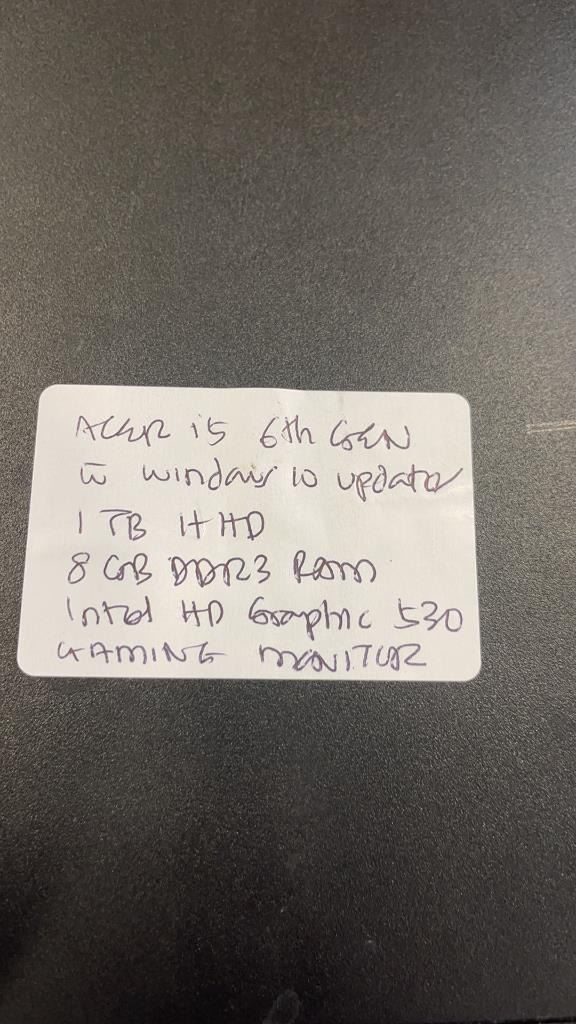 ACER i5 6th GEN
w̄ windows 10 updated
1 TB HHD
8 GB DDR3 Ram
Intel HD Graphic 530
GAMING MONITOR